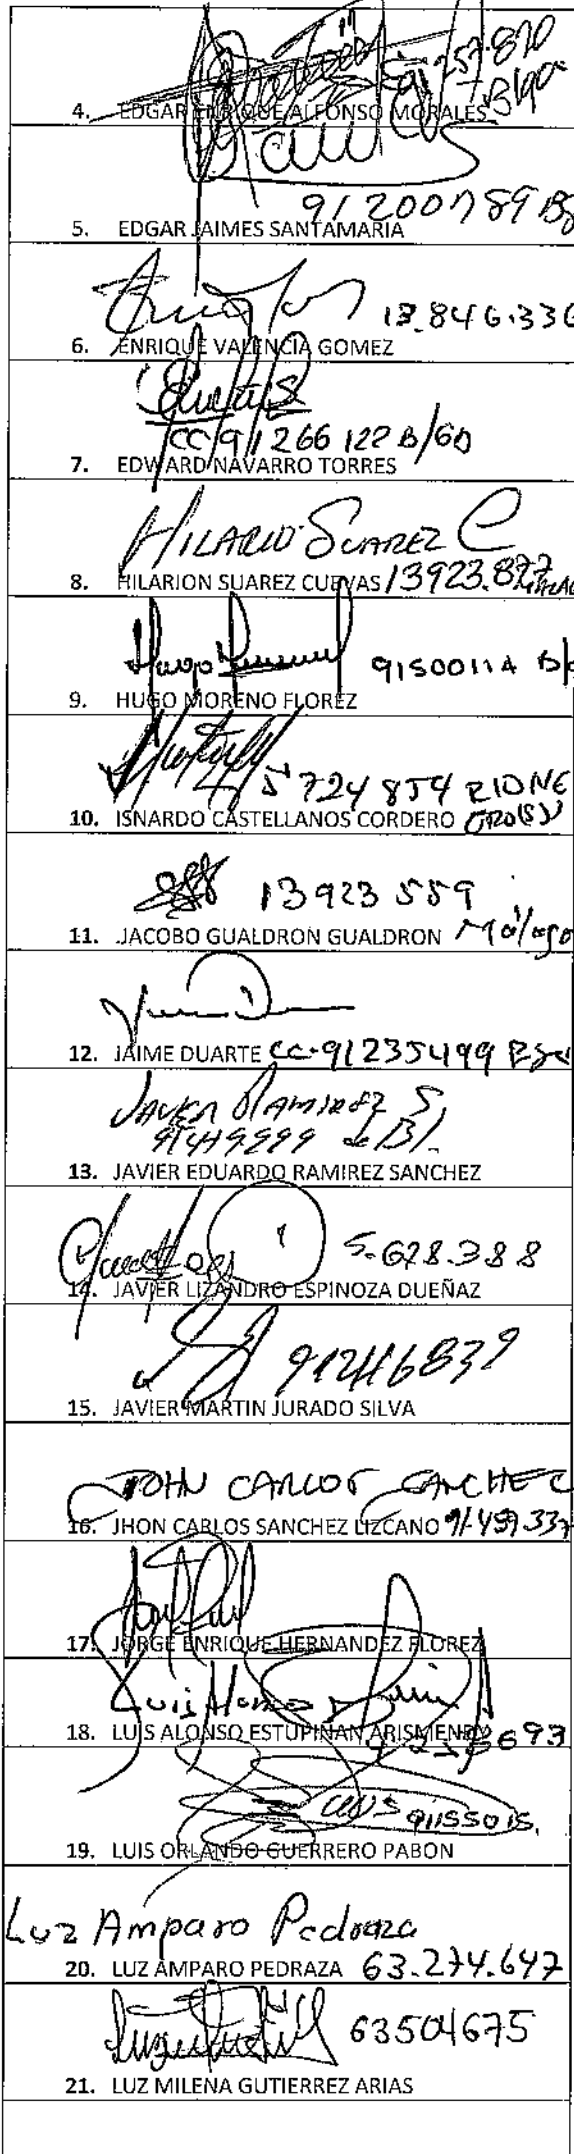 4. EDGAR ENRIQUE ALFONSO MORALES
91200789
5. EDGAR JAIMES SANTAMARIA
13.846.336
6. ENRIQUE VALENCIA GOMEZ
CC 91266122 B/GA
7. EDWARD NAVARRO TORRES
HILARIO SUAREZ C
8. HILARION SUAREZ CUEVAS 13923.877
Hugo
9. HUGO MORENO FLOREZ
5724854 RIONE
10. ISNARDO CASTELLANOS CORDERO GRO(S)
13923559
11. JACOBO GUALDRON GUALDRON Málaga
12. JAIME DUARTE CC. 91235499
JAVIER RAMIREZ S.
13. JAVIER EDUARDO RAMIREZ SANCHEZ
5.678.388
14. JAVIER LIZANDRO ESPINOZA DUEÑAZ
15. JAVIER MARTIN JURADO SILVA
JOHN CARLOS SANCHEZ
16. JHON CARLOS SANCHEZ LIZCANO
17. JORGE ENRIQUE HERNANDEZ FLOREZ
Luis Alonso
18. LUIS ALONSO ESTUPIÑAN ARISMENDY
19. LUIS ORLANDO GUERRERO PABON
Luz Amparo Pedraza
20. LUZ AMPARO PEDRAZA 63.274.647
63504675
21. LUZ MILENA GUTIERREZ ARIAS